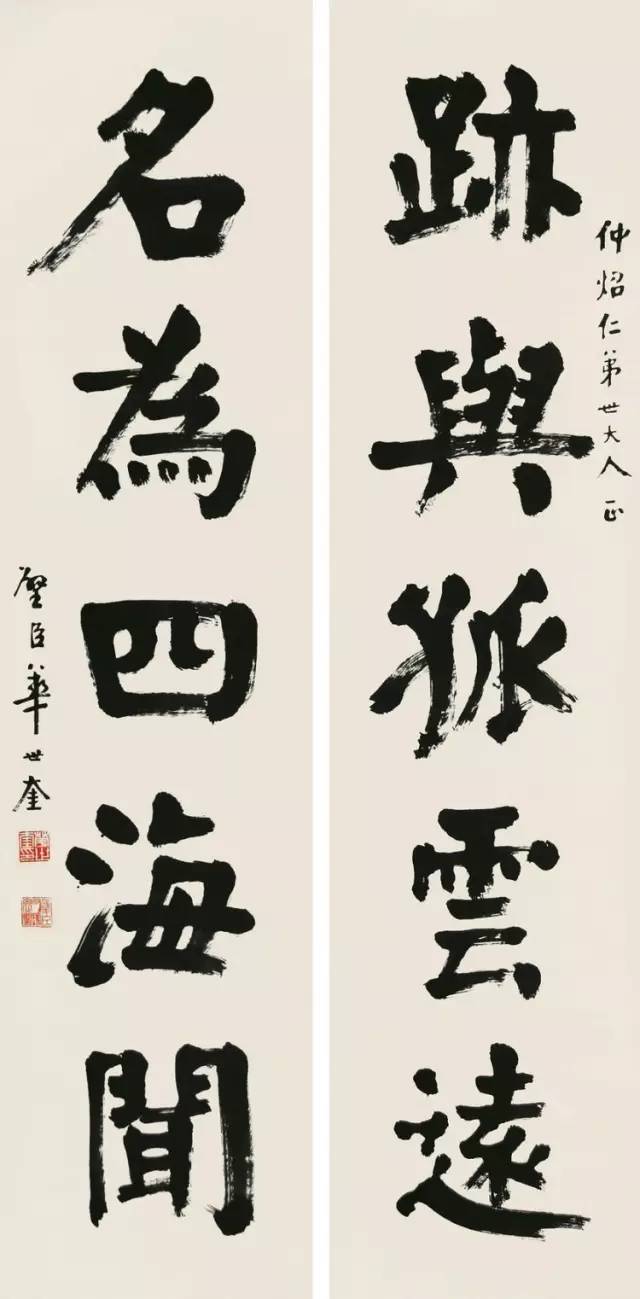 跡與孤雲遠
仲炤仁弟世大人 正
名為四海聞
璧臣華世奎